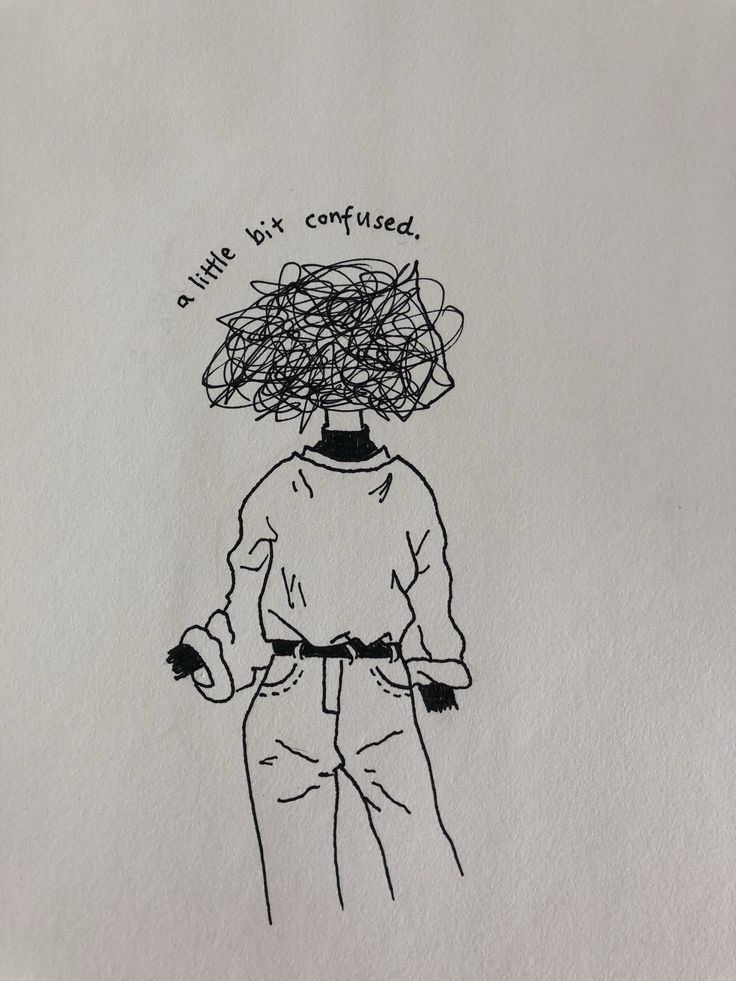 a little bit confused.